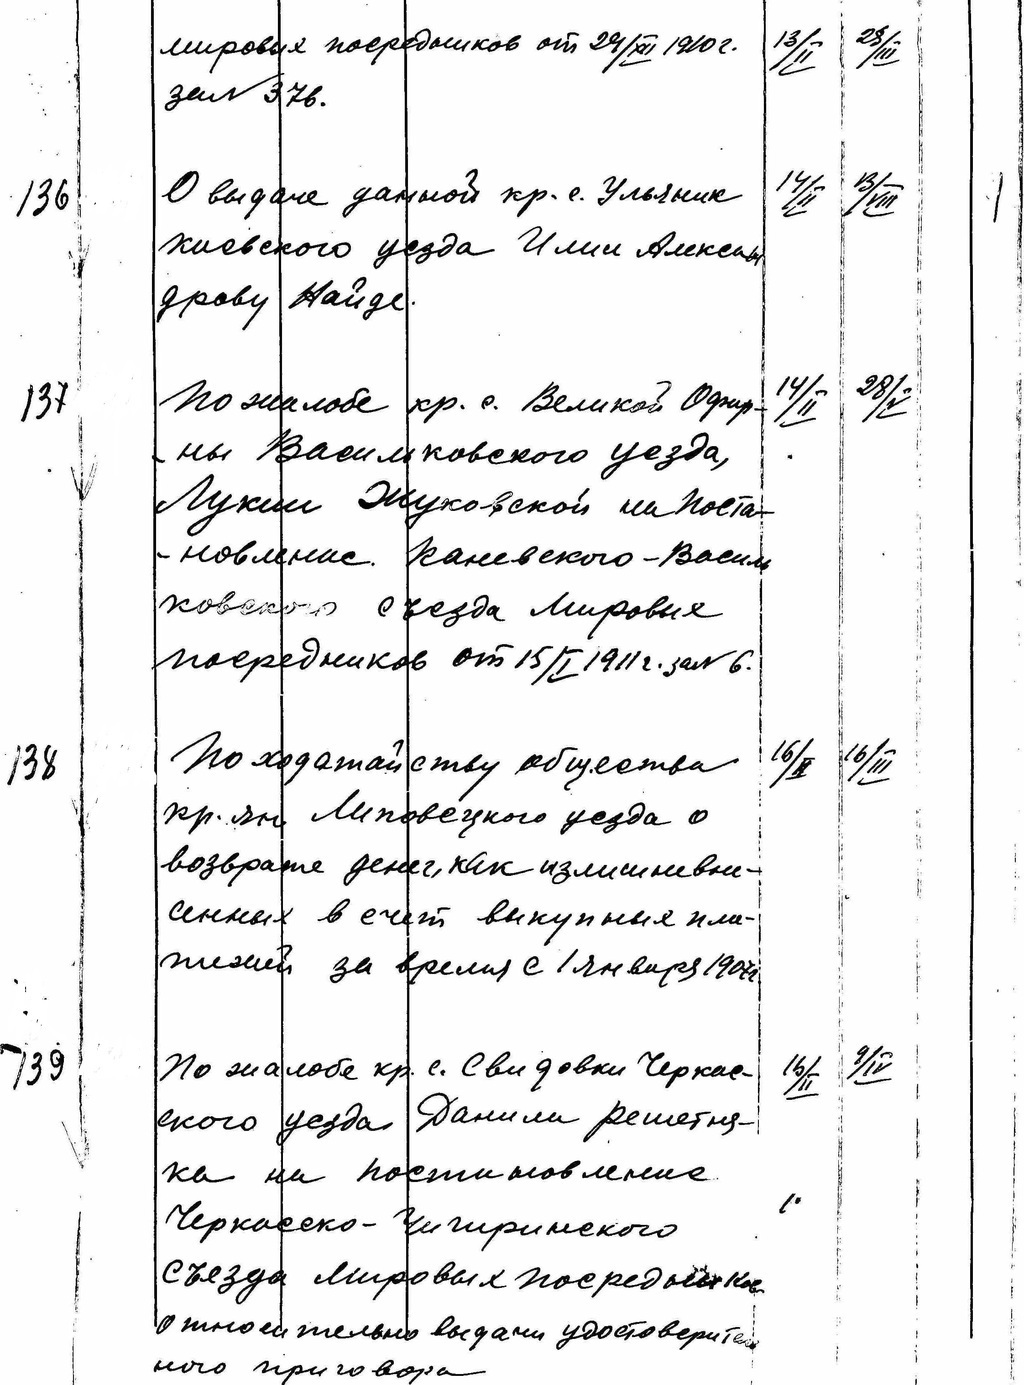 мировых посредников от 29/XII 1910 г. 13/II 28/III
за № 376.
136 О выдаче данной кр. с. Ульяник 14/II 13/VIII 1
Киевского уезда Илии Алексан
дрову Найде.
137 По жалобе кр. с. Великой Офир- 14/II 28/V
-ны Васильковского уезда,
Лукии Жуковской на поста-
-новление Каневского-Василь
ковского съезда Мировых
посредников от 15/I 1911 г. за № 6.
138 По ходатайству общества 16/II 16/III
кр.-ян Липовецкого уезда о
возврате денег, как излишне вне-
сенных в счет выкупных пла-
тежей за время с 1 января 1907г.
139 По жалобе кр. с. Свидовки Черкас- 16/II 9/IV
ского уезда Данила Решетня-
ка на постановление
Черкасско-Чигиринского
Съезда Мировых посредников
относительно выдачи удостоверител
ного приговора